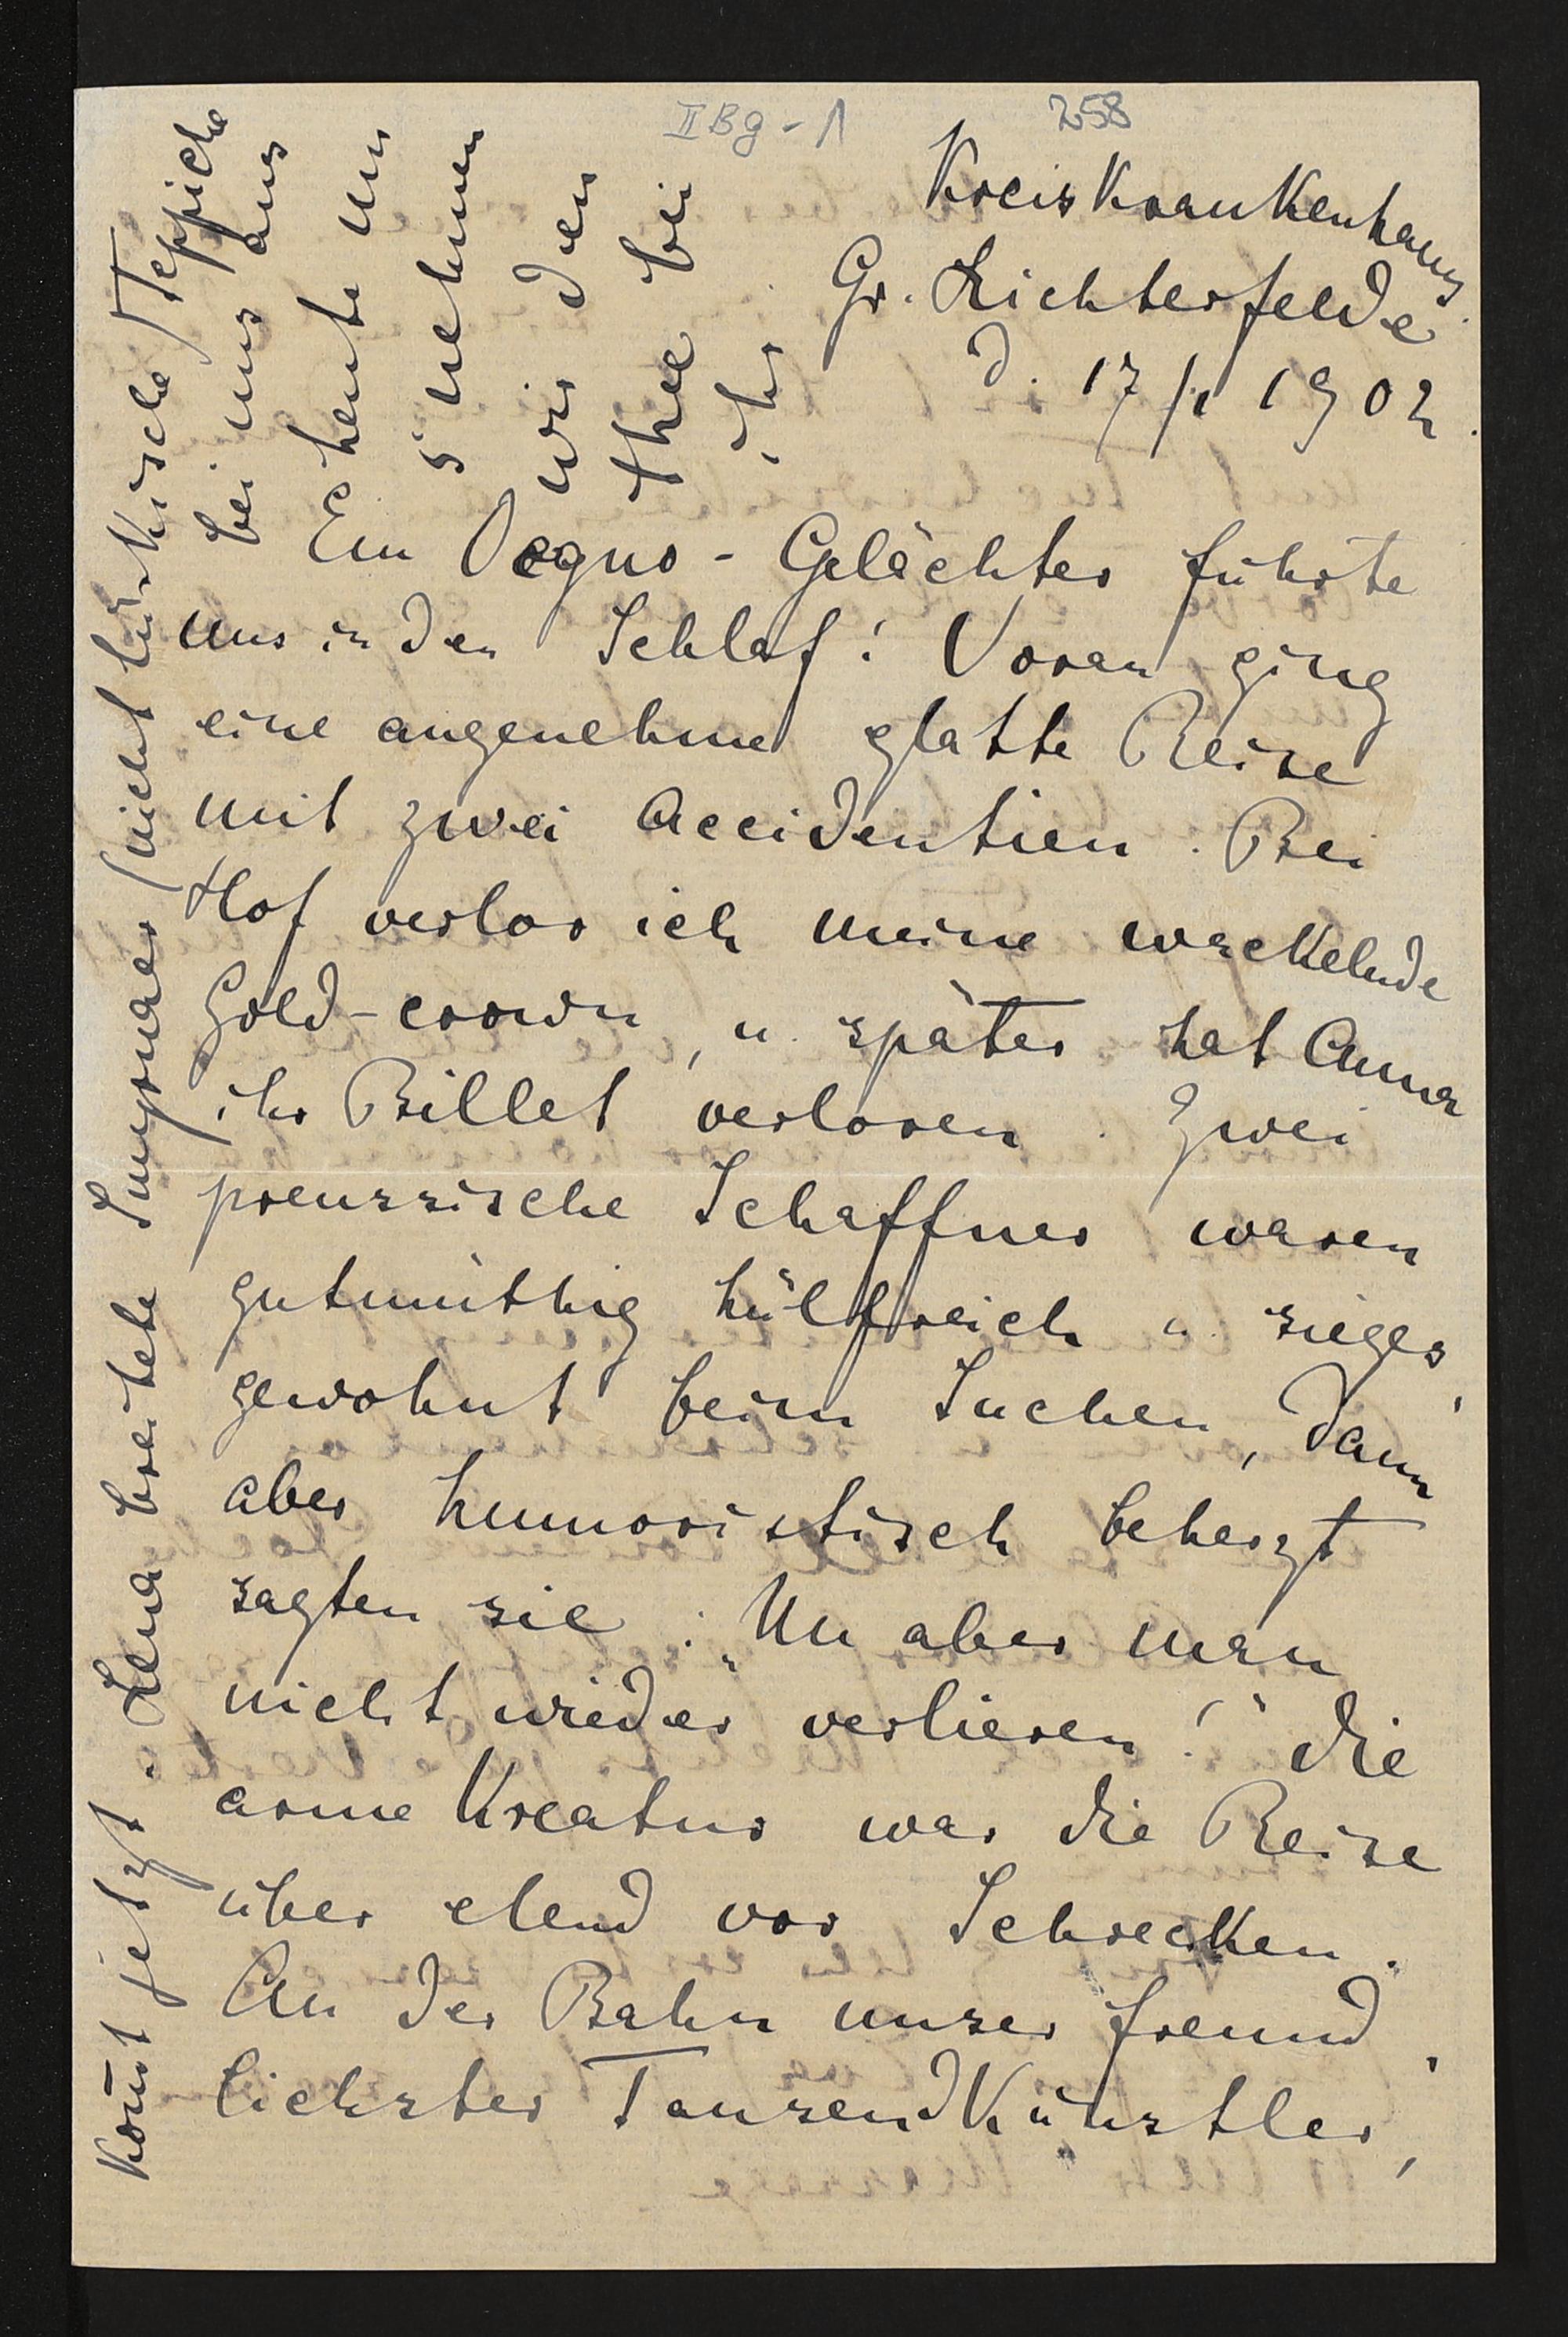 II Bg - 1
258
Kreiskrankenhaus
Gr. Lichterfelde
d. 17/1 1902.
Ein Oegno - Gelächter führte
uns in den Schlaf! Voran ging
eine angenehme glatte Reise
mit zwei Accidentien. Bei
Hof verlor ich meine wackelnde
Gold-crown, u. später hat Anna
ihr Billet verloren. Zwei
preussische Schaffner waren
gutmüthig hülfreich u. sieges-
gewohnt beim Suchen, dann
aber humoristisch beherzt
sagten sie: „Nu aber man
nicht wieder verlieren!" Die
arme Kreatur war die Reise
über elend vor Schrecken.
An der Bahn unser freund-
lichster Tausendkünstler,
kom̄t jetzt. Lena breitete Smyrnaer (nicht türkische) Teppiche
bei uns aus
heute um
5 nehmen
wir den
Thee bei
ihr